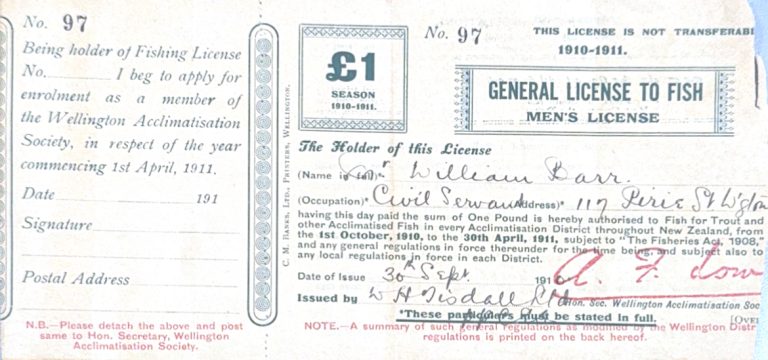 No. 97
Being holder of Fishing License
No. I beg to apply for
enrolment as a member of
the Wellington Acclimatisation
Society, in respect of the year
commencing 1st April, 1911.
Date 191
Signature
Postal Address
N.B.—Please detach the above and post
same to Hon. Secretary, Wellington
Acclimatisation Society.
C. M. BANKS, LTD., PRINTERS, WELLINGTON.
£1
SEASON
1910-1911.
No. 97
THIS LICENSE IS NOT TRANSFERABL
1910-1911.
GENERAL LICENSE TO FISH
MEN'S LICENSE
The Holder of this License
(Name in full)* William Barr.
(Occupation)* Civil Servant (Address)* 117 Pirie St Wgton
having this day paid the sum of One Pound is hereby authorised to Fish for Trout and
other Acclimatised Fish in every Acclimatisation District throughout New Zealand, from
the 1st October, 1910, to the 30th April, 1911, subject to "The Fisheries Act, 1908,"
and any general regulations in force thereunder for the time being, and subject also to
any local regulations in force in each District.
Date of Issue 30th Sept. 1910
Issued by W H Tisdall Ltd
Hon. Sec. Wellington Acclimatisation Soc
*These particulars must be stated in full. [OVE
NOTE.—A summary of such general regulations as modified by the Wellington Distr
regulations is printed on the back hereof.